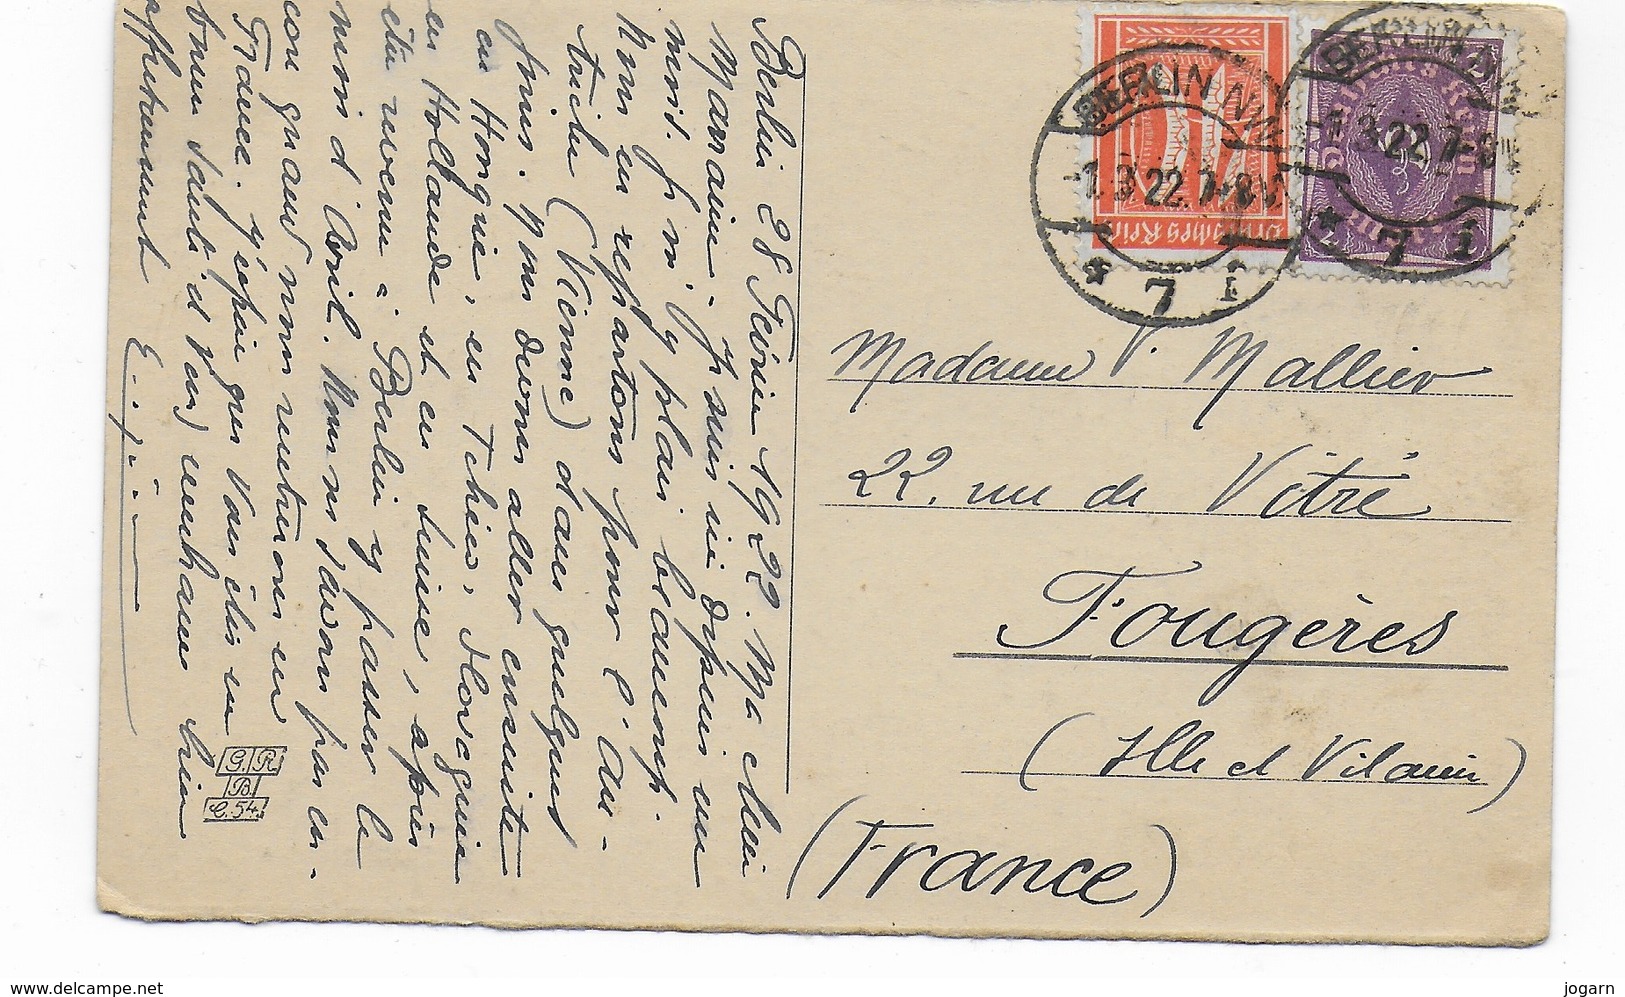 Berlin 28 Février 1922. Ma chère
Marraine. Je suis ici depuis un
mois. Je m'y plais beaucoup.
Nous en repartons pour l'Au-
triche (Vienne) dans quelques
jours. Nous devons aller ensuite
en Hongrie, en Tchéco, slovaquie
en Hollande et en Suisse, après
être revenu à Berlin y passer le
mois d'Avril. Nous ne savons pas en-
core quand nous rentrerons en
France. J'espère que vous êtes en
bonne santé et vous embrasse bien
affectueusement
Deutsches Reich
BERLIN NW
-1.3.22.7-8
* 7 i
BERLIN NW
-1.3.22.7-8
* 7 i
Deutsches Reich
2 Mark 2
Madame V. Mallier
22. rue de Vitré
Fougères
(Ille et Vilaine)
(France)
G. R.
B.
C. 54.
www.delcampe.net
jogarn